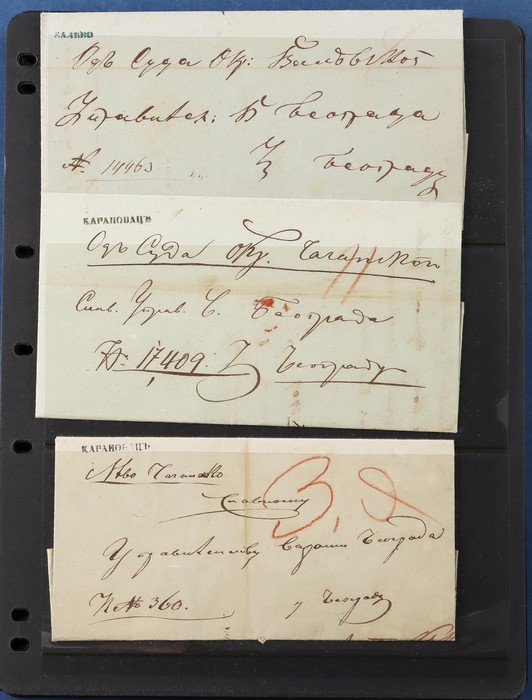 ВАЛѢВО
Одъ Суда Окр:
Управител: Б Београда
№ 14463 У Београду
КАРАНОВАЦЪ
Одъ Суда Окр. Чачанскогъ
Слав. Управ. В. Београда
№ 17,409. У Београду
КАРАНОВАЦЪ
Чачанско
Славному
Управителству Вароши Београда
№ 360. у Београду